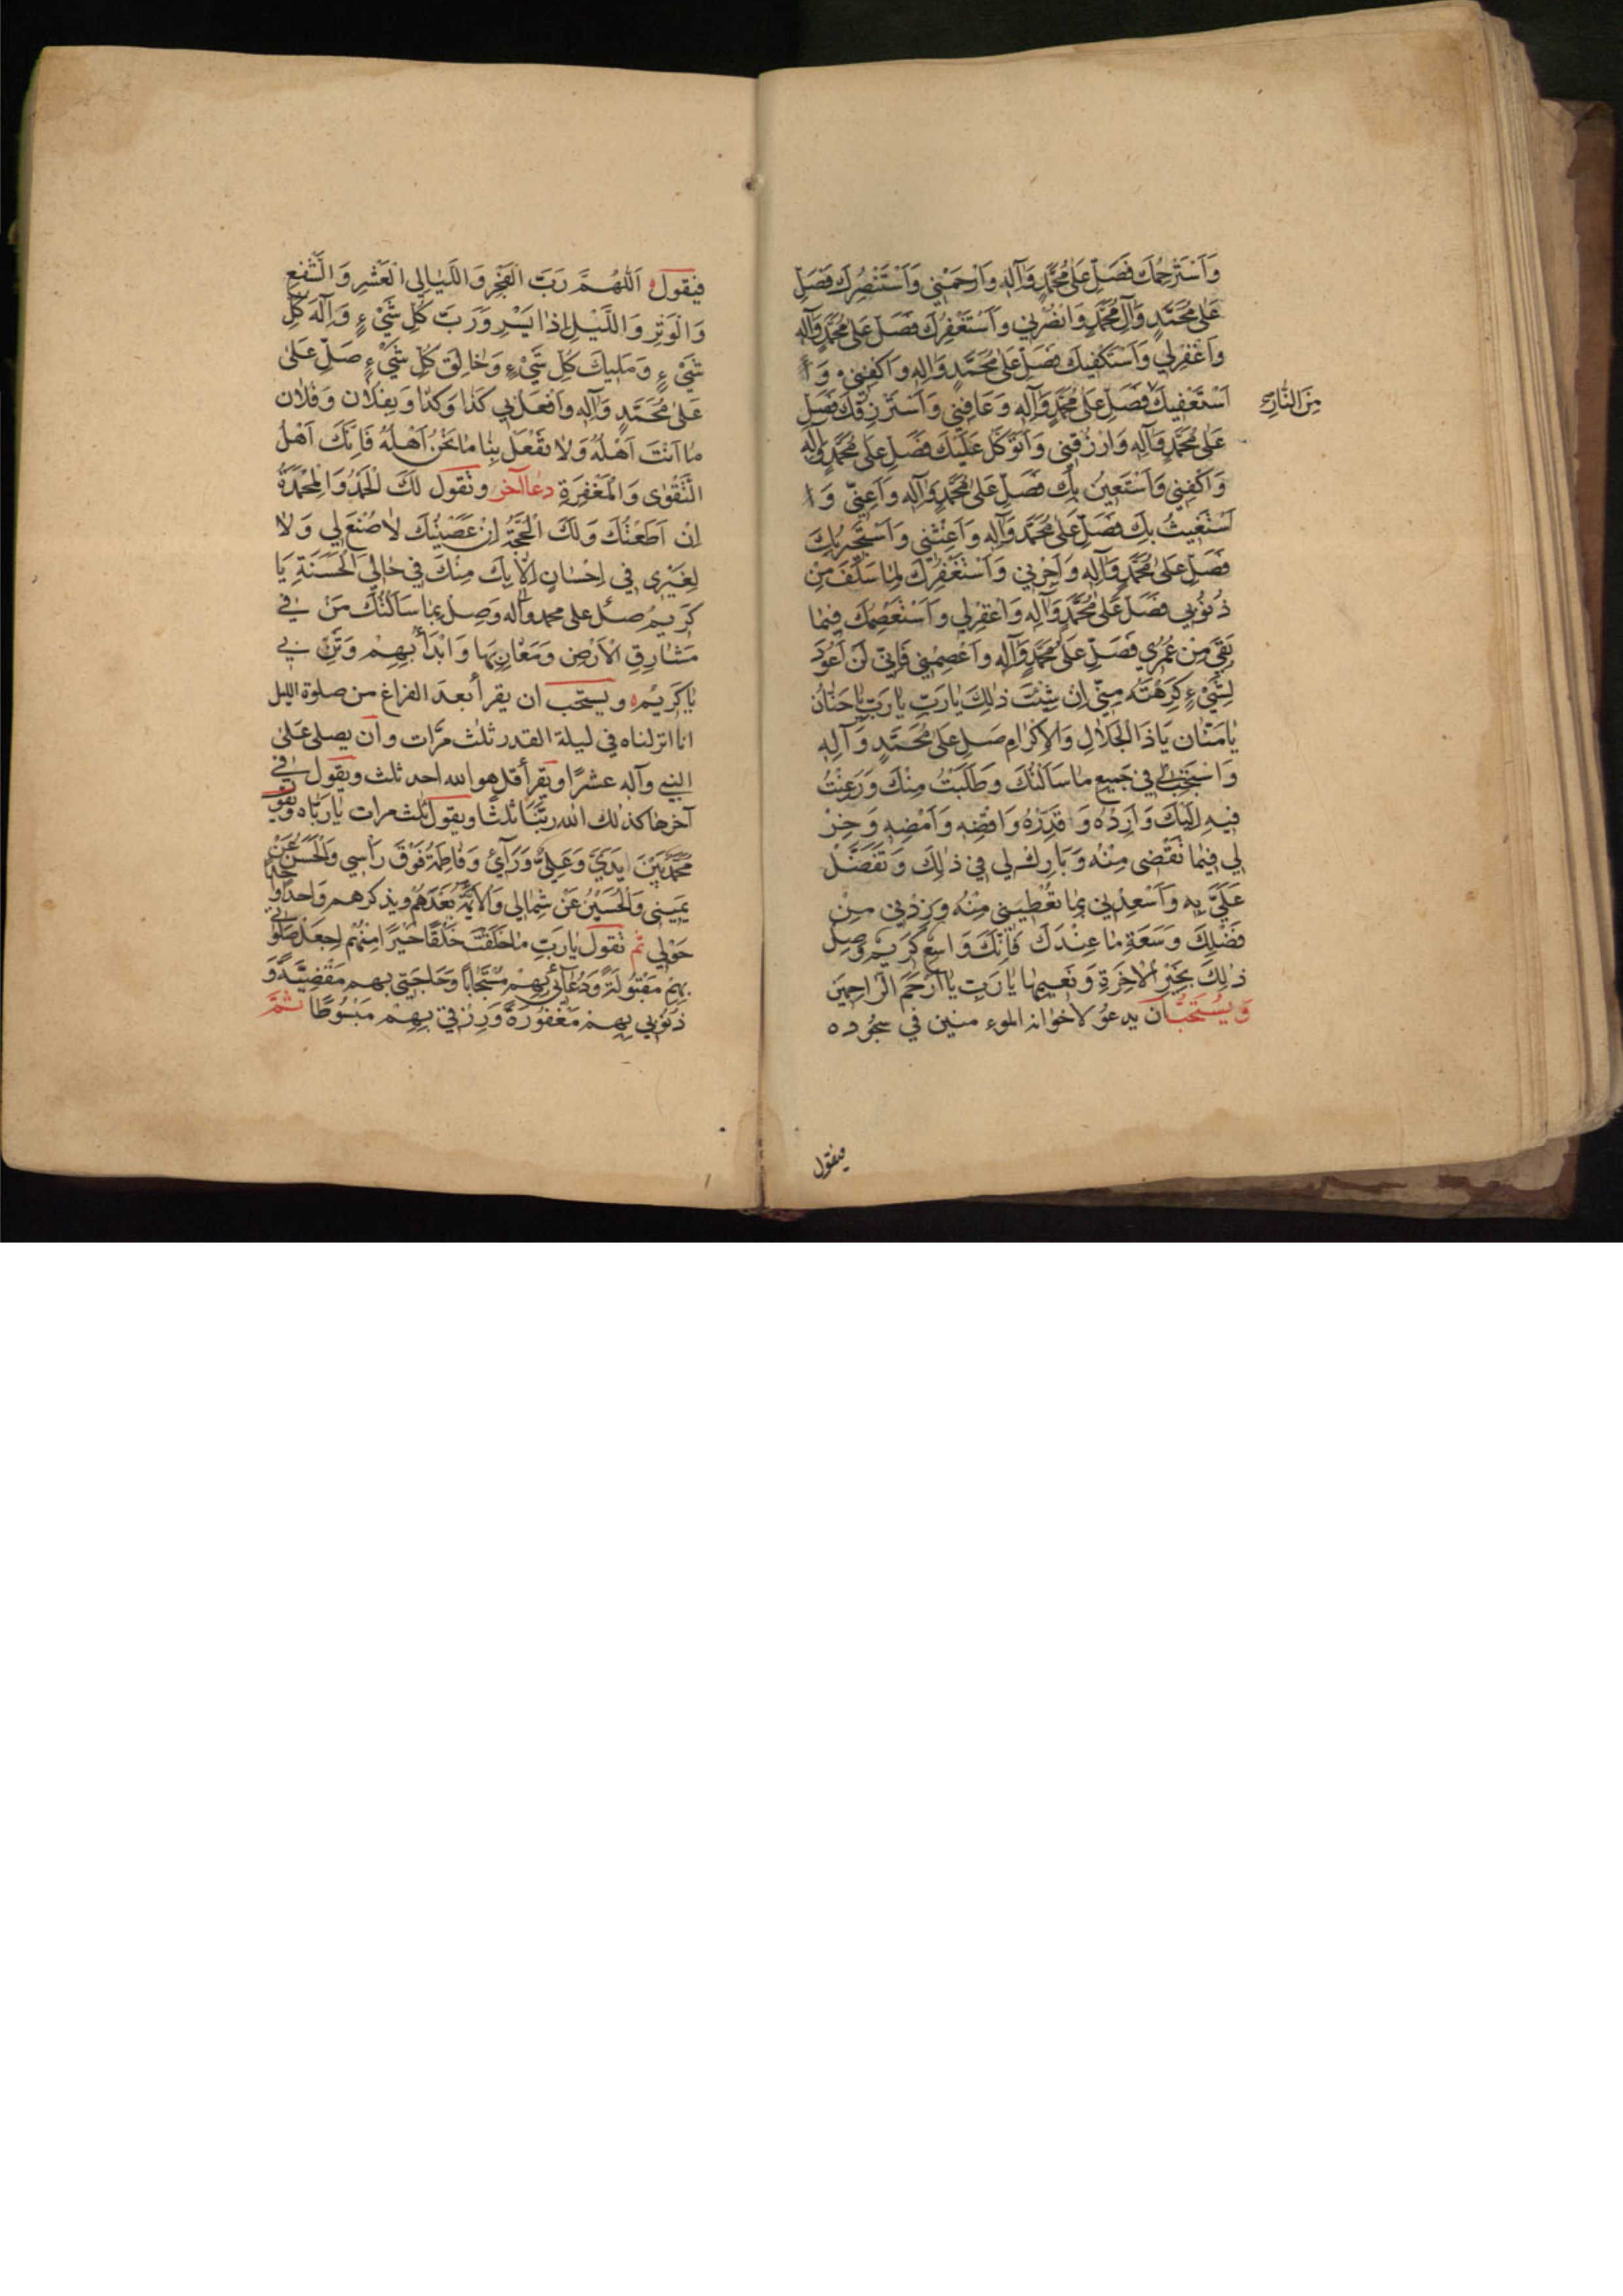 وَاَسْتَرْحِمُكَ فَصَلِّ عَلىٰ مُحَمَّدٍ وَآلِهِ وَارْحَمْنِي وَاَسْتَنْصِرُكَ فَصَلِّ
عَلىٰ مُحَمَّدٍ وَآلِ مُحَمَّدٍ وَانْصُرْنِي وَاَسْتَغْفِرُكَ فَصَلِّ عَلىٰ مُحَمَّدٍ وَآلِهِ
وَاغْفِرْلِي وَاَسْتَكْفِيكَ فَصَلِّ عَلىٰ مُحَمَّدٍ وَآلِهِ وَاكْفِنِي وَ
اَسْتَعْفِيكَ فَصَلِّ عَلىٰ مُحَمَّدٍ وَآلِهِ وَعَافِنِي وَاَسْتَرْزِقُكَ فَصَلِّ
مِنَ النَّارِ
عَلىٰ مُحَمَّدٍ وَآلِهِ وَارْزُقْنِي وَاَتَوَكَّلُ عَلَيْكَ فَصَلِّ عَلىٰ مُحَمَّدٍ وَآلِهِ
وَاكْفِنِي وَاَسْتَعِينُ بِكَ فَصَلِّ عَلىٰ مُحَمَّدٍ وَآلِهِ وَاَعِنِّي وَ
اَسْتَغِيثُ بِكَ فَصَلِّ عَلىٰ مُحَمَّدٍ وَآلِهِ وَاَغِثْنِي وَاَسْتَجِيرُ بِكَ
فَصَلِّ عَلىٰ مُحَمَّدٍ وَآلِهِ وَاَجِرْنِي وَاَسْتَغْفِرُكَ لِمٰا سَلَفَ مِنْ
ذُنُوبِي فَصَلِّ عَلىٰ مُحَمَّدٍ وَآلِهِ وَاغْفِرْلِي وَاَسْتَعْصِمُكَ فِيمٰا
بَقِيَ مِنْ عُمْرِي فَصَلِّ عَلىٰ مُحَمَّدٍ وَآلِهِ وَاعْصِمْنِي فَاِنِّي لَنْ اَعُودَ
لِشَيْءٍ كَرِهْتَهُ مِنِّي اِنْ شِئْتَ ذٰلِكَ يٰارَبِّ يٰارَبِّ يٰاحَنّٰانُ
يٰامَنّٰان يٰاذَا الْجَلٰالِ وَالْاِكْرٰامِ صَلِّ عَلىٰ مُحَمَّدٍ وَآلِهِ
وَاسْتَجِبْ لِي فِي جَمِيعِ مٰا سَاَلْتُكَ وَطَلَبْتُ مِنْكَ وَرَغِبْتُ
فِيهِ اِلَيْكَ وَاَرِدْهُ وَ قَدِّرْهُ وَاقْضِهِ وَاَمْضِهِ وَخِرْ
لِي فِيمٰا تَقْضِي مِنْهُ وَبٰارِكْ لِي فِي ذٰلِكَ وَتَفَضَّلْ
عَلَيَّ بِهِ وَاَسْعِدْنِي بِمٰا تُعْطِينِي مِنْهُ وَزِدْنِي مِنْ
فَضْلِكَ وَسَعَةِ مٰا عِنْدَكَ فَاِنَّكَ وَاسِعٌ كَرِيمٌ وَصِلْ
ذٰلِكَ بِخَيْرِ الْاٰخِرَةِ وَنَعِيمِهٰا يٰارَبِّ يٰااَرْحَمَ الرّٰاحِمِينَ
وَيُسْتَحَبُّ اَن يدعُوَ لاخوانه الموءمنين في سجُوده
فيقول
فيقول اَللّٰهُمَّ رَبَّ الْفَجْرِ وَاللَّيٰالِي الْعَشْرِ وَالشَّفْعِ
وَالْوَتْرِ وَاللَّيْلِ اِذٰا يَسْرِ وَرَبَّ كُلِّ شَيْءٍ وَاِلٰهَ كُلِّ
شَيْءٍ وَمَلِيكَ كُلِّ شَيْءٍ وَخٰالِقَ كُلِّ شَيْءٍ صَلِّ عَلىٰ
عَلىٰ مُحَمَّدٍ وَآلِهِ وَافْعَلْ بِي كَذٰا وَكَذٰا وَبِفُلٰان وَفُلٰان
مٰا اَنْتَ اَهْلُهُ وَلٰا تَفْعَلْ بِنٰا مٰا نَحْنُ اَهْلُهُ فَاِنَّكَ اَهْلُ
التَّقْوٰى وَالْمَغْفِرَةِ دعاآخر وتقول لَكَ الْحَمْدُ وَالْمَحْمِدَةُ
اِنْ اَطَعْتُكَ وَلَكَ الْحُجَّةُ اِنْ عَصَيْتُكَ لٰا صُنْعَ لِي وَلٰا
لِغَيْرِي فِي اِحْسٰانٍ اِلّٰا بِكَ مِنْكَ فِي حٰالِي الْحَسَنَةِ يٰا
كَرِيمُ صَلِّ على محمد وآله وَصِلْ بِمٰا سَاَلْتُكَ مَنْ في
مَشٰارِقِ الْاَرْضِ وَمَغٰارِبِهٰا وَابْدَأْ بِهِمْ وَثَنِّ بي
يٰاكَرِيمُ ويستحب ان يقرأ بعد الفراغ من صلوة الليل
انا انزلناه في ليلة القدر ثلٰث مرَّات وان يصلى عَلىٰ
النبي وآله عشرًا ويقرأ قل هو الله احد ثلث ويقول في
آخرها كذلك الله ربّنا ثلثًا ويقول ثلٰث مرات يٰارَبّٰاه ويقو
مُحَمَّدٌ بَيْنَ يَدَيَّ وَعَلِيٌّ وَرٰآئِي وَفٰاطِمَةُ فَوْقَ رَأْسِي وَالْحَسَنُ عَنْ
يَمِينِي وَالْحُسَيْنُ عَنْ شِمٰالِي وَالْاَئِمَّةُ بَعْدَهُمْ ويذكرهم وَاحدًا وا
حَوْلِي ثم تقول يٰارَبِّ مٰا خَلَقْتَ خَلْقًا خَيْرًا مِنْهُمْ اجْعَلْ صَلَوٰاتِي
بِهِمْ مَقْبُولَةً وَدُعٰآئِي بِهِمْ مُسْتَجٰابًا وَحٰاجَتِي بِهِمْ مَقْضِيَّةً وَ
ذُنُوبِي بِهِمْ مَغْفُورَةً وَرِزْقِي بِهِمْ مَبْسُوطًا ثمَّ